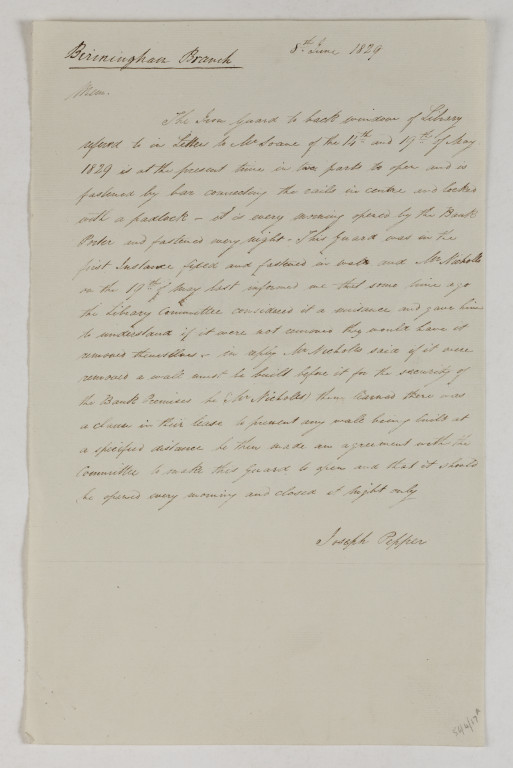 Birmingham Branch 8th June 1829
Mem.
The Iron Guard to back window of Library
referred to in Letter to Mr Soane of the 14th and 19th of May
1829 is at the present time in two parts to open and is
fastened by bar connecting the rails in centre and locked
with a padlock – it is every morning opened by the Bank
Porter and fastened every night – This Guard was in the
first Instance fixed and fastened in walls and Mr Nicholls
on the 19th of May last informed me that some time ago
the Library Committee considered it a nuisance and gave him
to understand if it were not removed they would have it
removed themselves – in reply Mr Nicholls said if it were
removed a wall must be built before it for the security of
the Bank Premises he (Mr Nicholls) then learned there was
a clause in their lease to prevent any wall being built at
a specified distance he then made an agreement with the
Committee to make this Guard to open and that it should
be opened every morning and closed at Night only
Joseph Pepper